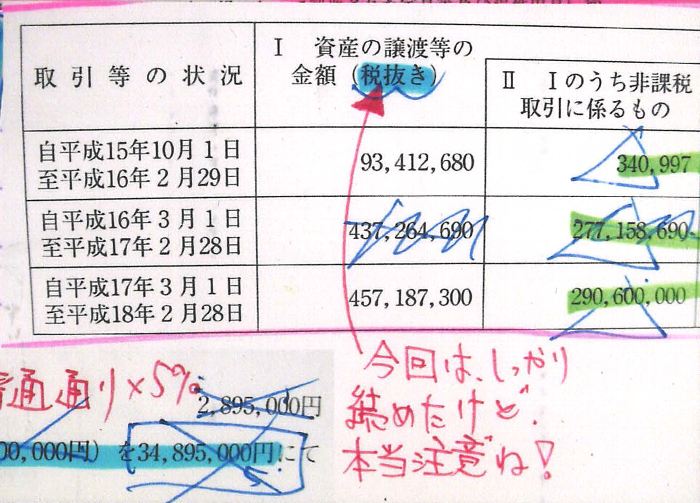 取引等の状況
Ⅰ 資産の譲渡等の
金額（税抜き）
Ⅱ Ⅰのうち非課税
取引に係るもの
自平成15年10月1日
至平成16年2月29日
93,412,680
340,997
自平成16年3月1日
至平成17年2月28日
437,264,690
277,158,690
自平成17年3月1日
至平成18年2月28日
457,187,300
290,600,000
普通通り×5%
2,895,000円
00,000円）を34,895,000円にて
今回は、しっかり
読めたけど、
本当注意ね！